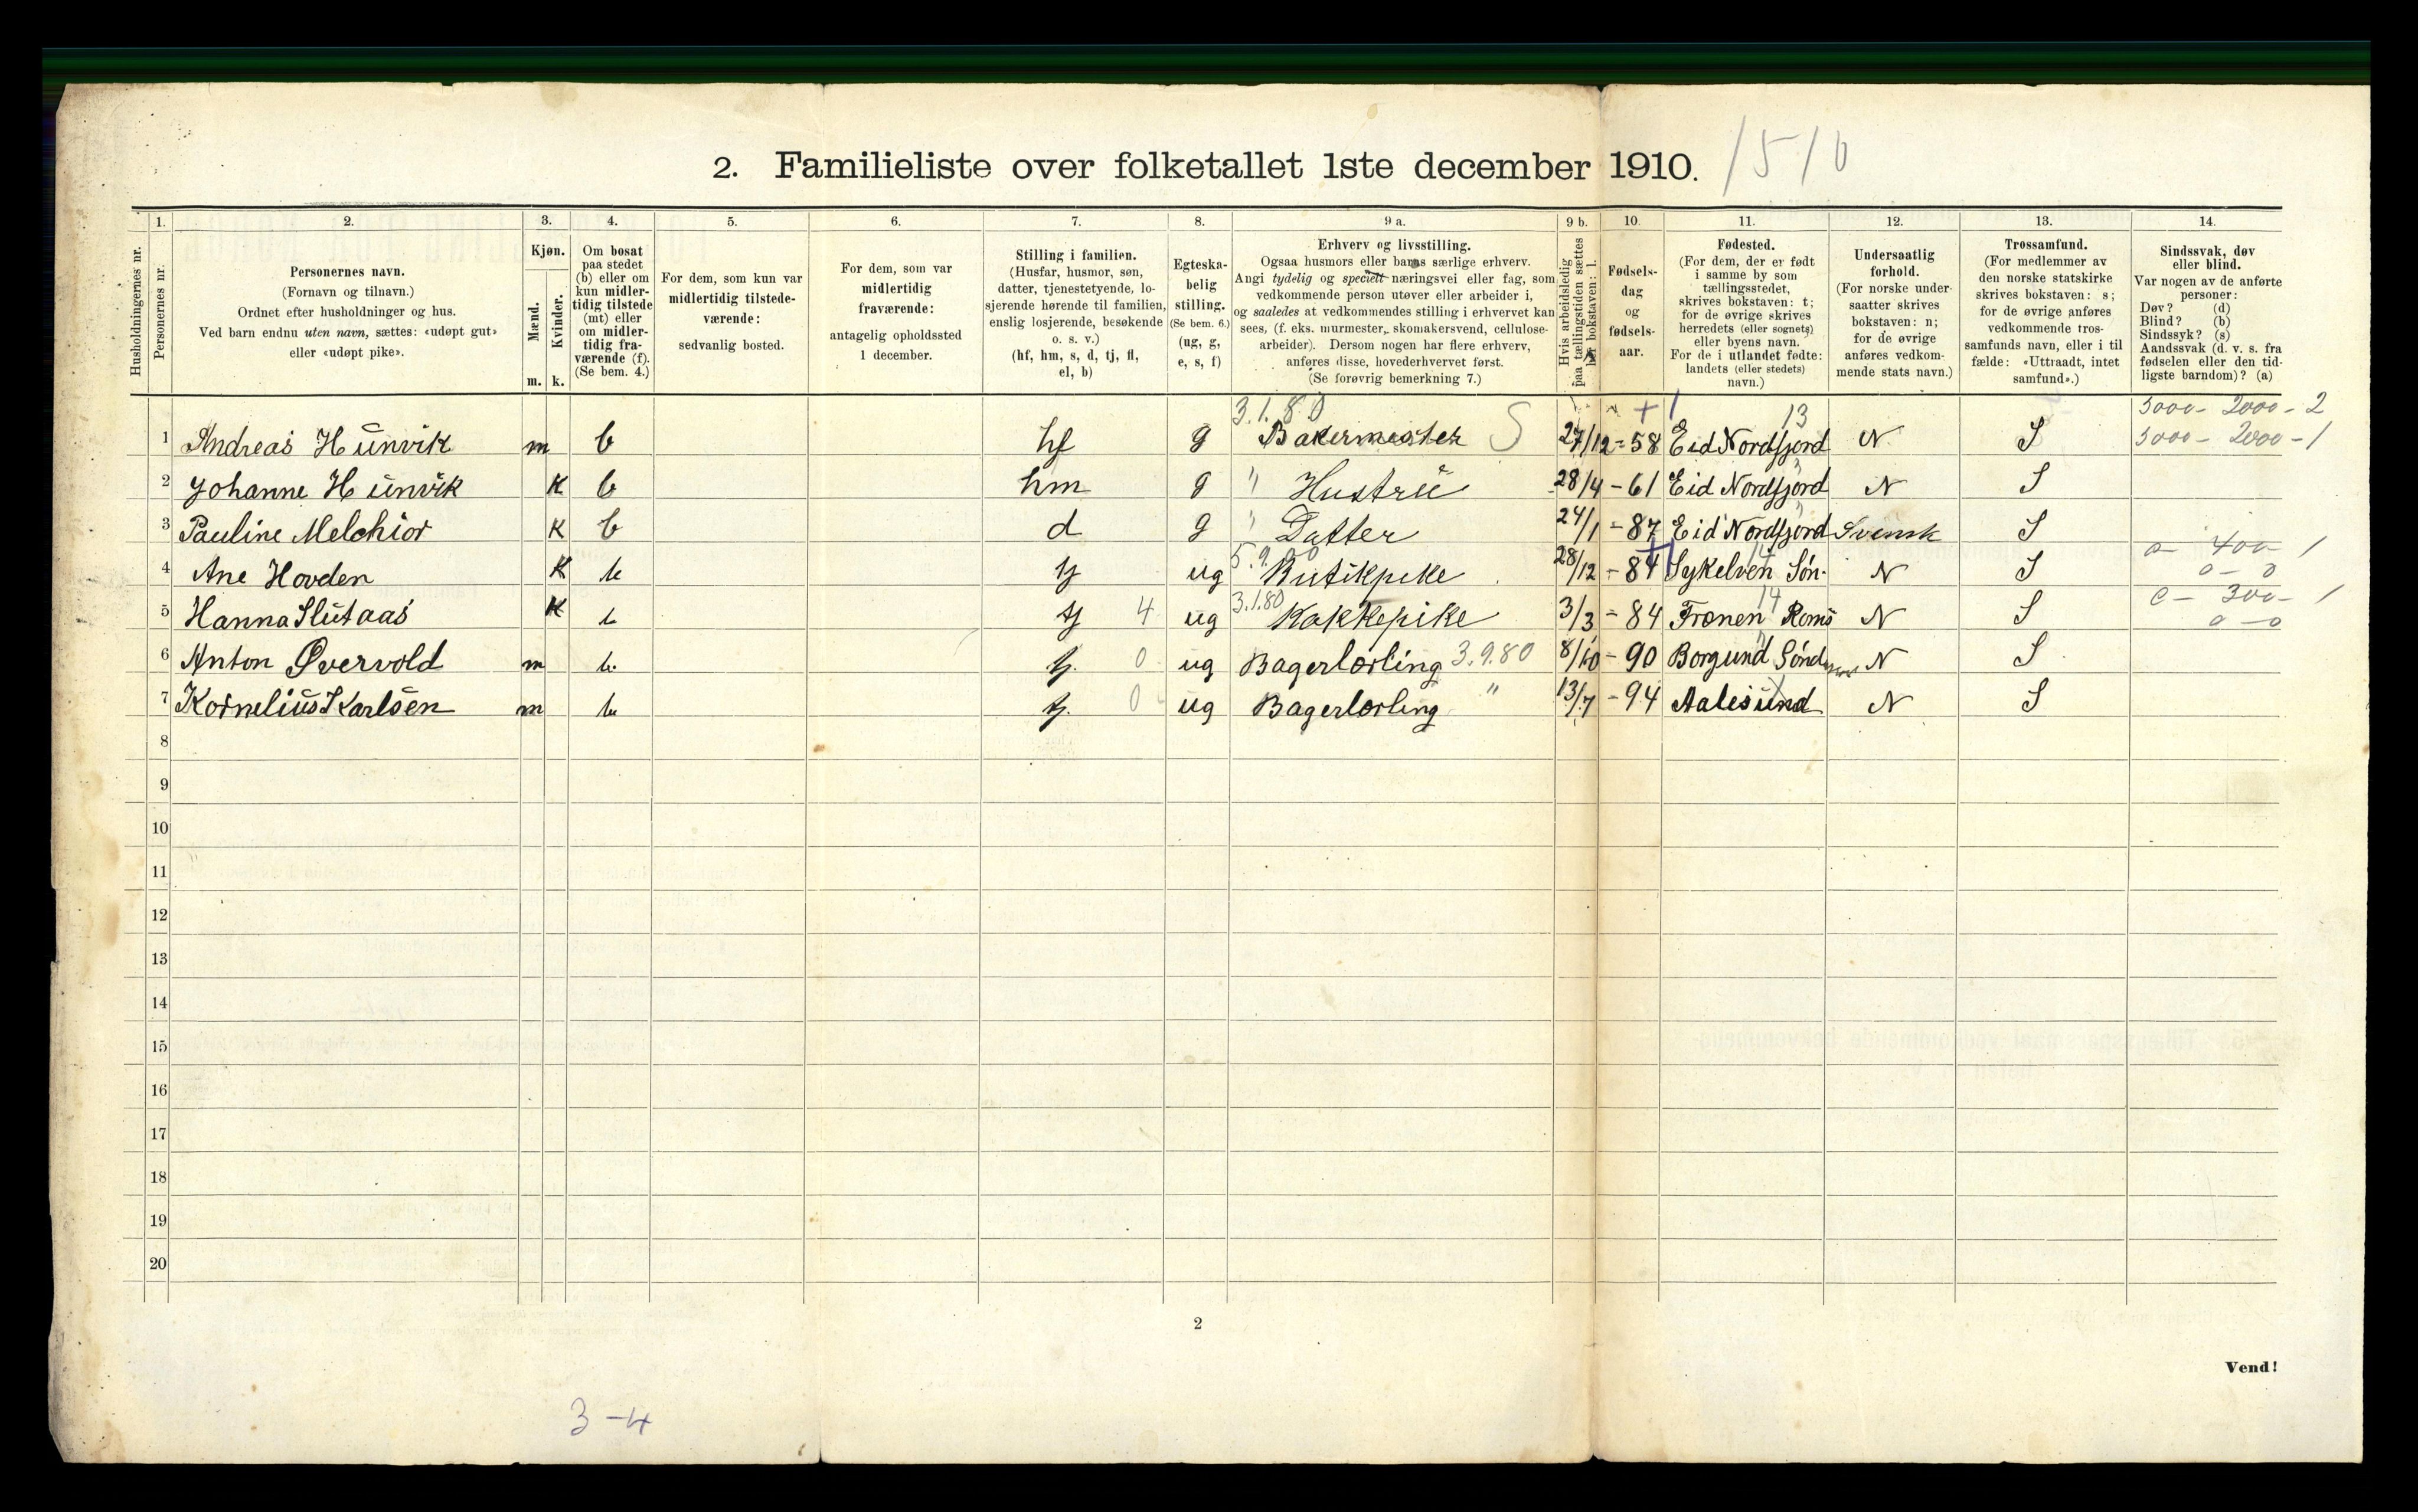 2. Familieliste over folketallet 1ste december 1910. 1510
Husholdningernes nr.
1. Personernes nr.
2. Personernes navn.
(Fornavn og tilnavn.)
Ordnet efter husholdninger og hus.
Ved barn endnu uten navn, sættes: «udøpt gut»
eller «udøpt pike».
3. Kjøn.
Mænd. m.
Kvinder. k.
4. Om bosat
paa stedet
(b) eller om
kun midler-
tidig tilstede
(mt) eller
om midler-
tidig fra-
værende (f).
(Se bem. 4.)
5. For dem, som kun var
midlertidig tilstede-
værende:
sedvanlig bosted.
6. For dem, som var
midlertidig
fraværende:
antagelig opholdssted
1 december.
7. Stilling i familien.
(Husfar, husmor, søn,
datter, tjenestetyende, lo-
sjerende hørende til familien,
enslig losjerende, besøkende
o. s. v.)
(hf, hm, s, d, tj, fl,
el, b)
8. Egteska-
belig
stilling.
(Se bem. 6.)
(ug, g,
e, s, f)
9 a. Erhverv og livsstilling.
Ogsaa husmors eller barns særlige erhverv.
Angi tydelig og specielt næringsvei eller fag, som
vedkommende person utøver eller arbeider i,
og saaledes at vedkommendes stilling i erhvervet kan
sees, (f. eks. murmester, skomakersvend, cellulose-
arbeider). Dersom nogen har flere erhverv,
anføres disse, hovederhvervet først.
(Se forøvrig bemerkning 7.)
9 b. Hvis arbeidsledig
paa tællingstiden sættes
her bokstaven: l.
10. Fødsels-
dag
og
fødsels-
aar.
11. Fødested.
(For dem, der er født
i samme by som
tællingsstedet,
skrives bokstaven: t;
for de øvrige skrives
herredets (eller sognets)
eller byens navn.
For de i utlandet fødte:
landets (eller stedets)
navn.)
12. Undersaatlig
forhold.
(For norske under-
saatter skrives
bokstaven: n;
for de øvrige
anføres vedkom-
mende stats navn.)
13. Trossamfund.
(For medlemmer av
den norske statskirke
skrives bokstaven: s;
for de øvrige anføres
vedkommende tros-
samfunds navn, eller i til
fælde: «Uttraadt, intet
samfund».)
14. Sindssvak, døv
eller blind.
Var nogen av de anførte
personer:
Døv? (d)
Blind? (b)
Sindssyk? (s)
Aandssvak (d. v. s. fra
fødselen eller den tid-
ligste barndom)? (a)
3.1.80 +1 13 3000- 2000-2
1 Andreas Hunvik m b hf g Bakermester S 27/12-58 Eid Nordfjord N S 3000- 2000-1
2 Johanne Hunvik K b hm g " Hustru 28/4-61 Eid Nordfjord N S
3 Pauline Melchior K b d g " Datter 24/1-87 Eid Nordfjord Svensk S
5.9.00 +1 14 0- 400- 1
4 Ane Hovden K b tj ug Butikpike 28/12-84 Sykelven Søn. N S 0-0
3.1.80 14 0- 300- 1
5 Hanna Slutaas K b tj 4 ug Kokkepike 3/3-84 Frænen Roms N S 0-0
6 Anton Øvervold m b tj. 0 ug Bagerlærling 3.9.80 8/10-90 Borgund N S
7 Kornelius Karlsen m b tj. 0 ug Bagerlærling " 13/7-94 Aalesund N S
8
9
10
11
12
13
14
15
16
17
18
19
20
2
Vend!
3-4